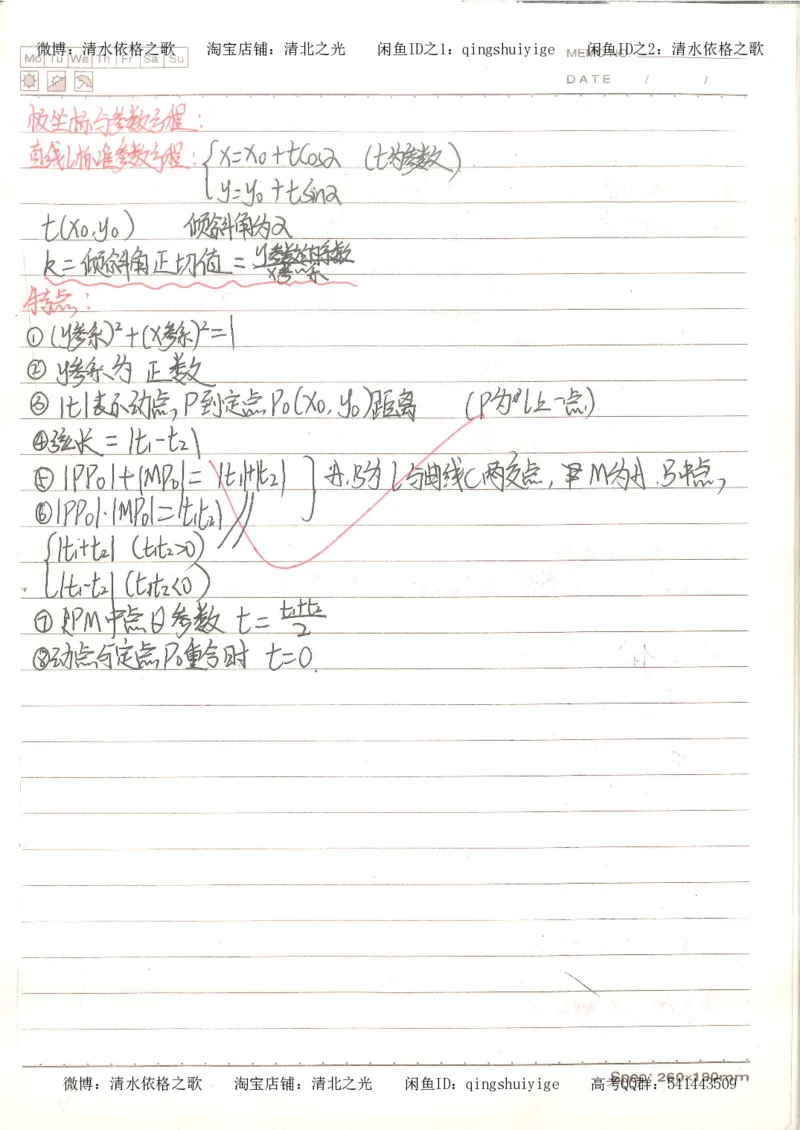 微博：清水依格之歌 淘宝店铺：清北之光 闲鱼ID之1：qingshuiyige 闲鱼ID之2：清水依格之歌
Mo Tu We Th Fr Sa Su MEMO NO.
DATE / /
极坐标与参数方程：
直线l标准参数方程：{x=x₀+tcosα (t为参数)
y=y₀+tsinα
t(x₀,y₀) 倾斜角为α
k=倾斜角正切值=y参数的系数/x参…系
特点：
①(y参系)²+(x参系)²=1
②y参系为正数
③|t|表示动点P到定点P₀(x₀,y₀)距离 (P为l上一点)
④弦长=|t₁-t₂|
⑤|PP₀|+|MP₀|=|t₁|+|t₂| } A.B为l与曲线C两交点, M为A.B中点,
⑥|PP₀|·|MP₀|=|t₁t₂|
{|t₁+t₂| (t₁t₂>0)
|t₁-t₂| (t₁t₂<0)
⑦PM中点θ参数 t=(t₁+t₂)/2
⑧动点与定点P₀重合时 t=0.
Spec: 260x190mm
微博：清水依格之歌 淘宝店铺：清北之光 闲鱼ID：qingshuiyige 高考QQ群：541443509